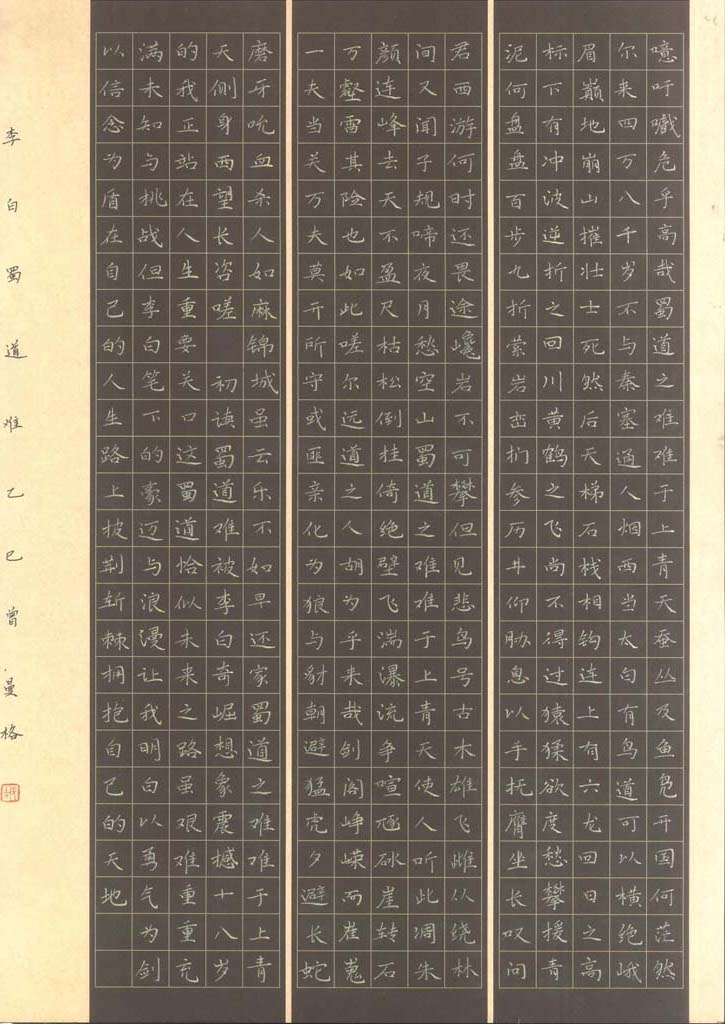 噫吁嚱危乎高哉蜀道之难难于上青天蚕丛及鱼凫开国何茫然
尔来四万八千岁不与秦塞通人烟西当太白有鸟道可以横绝峨
眉巅地崩山摧壮士死然后天梯石栈相钩连上有六龙回日之高
标下有冲波逆折之回川黄鹤之飞尚不得过猿猱欲度愁攀援青
泥何盘盘百步九折萦岩峦扪参历井仰胁息以手抚膺坐长叹问
君西游何时还畏途巉岩不可攀但见悲鸟号古木雄飞雌从绕林
间又闻子规啼夜月愁空山蜀道之难难于上青天使人听此凋朱
颜连峰去天不盈尺枯松倒挂倚绝壁飞湍瀑流争喧豗砯崖转石
万壑雷其险也如此嗟尔远道之人胡为乎来哉剑阁峥嵘而崔嵬
一夫当关万夫莫开所守或匪亲化为狼与豺朝避猛虎夕避长蛇
磨牙吮血杀人如麻锦城虽云乐不如早还家蜀道之难难于上青
天侧身西望长咨嗟 初读蜀道难被李白奇崛想象震撼十八岁
的我正站在人生重要关口这蜀道恰似未来之路虽艰难重重充
满未知与挑战但李白笔下的豪迈与浪漫让我明白以勇气为剑
以信念为盾在自己的人生路上披荆斩棘拥抱自己的天地
李白蜀道难乙巳曾曼格